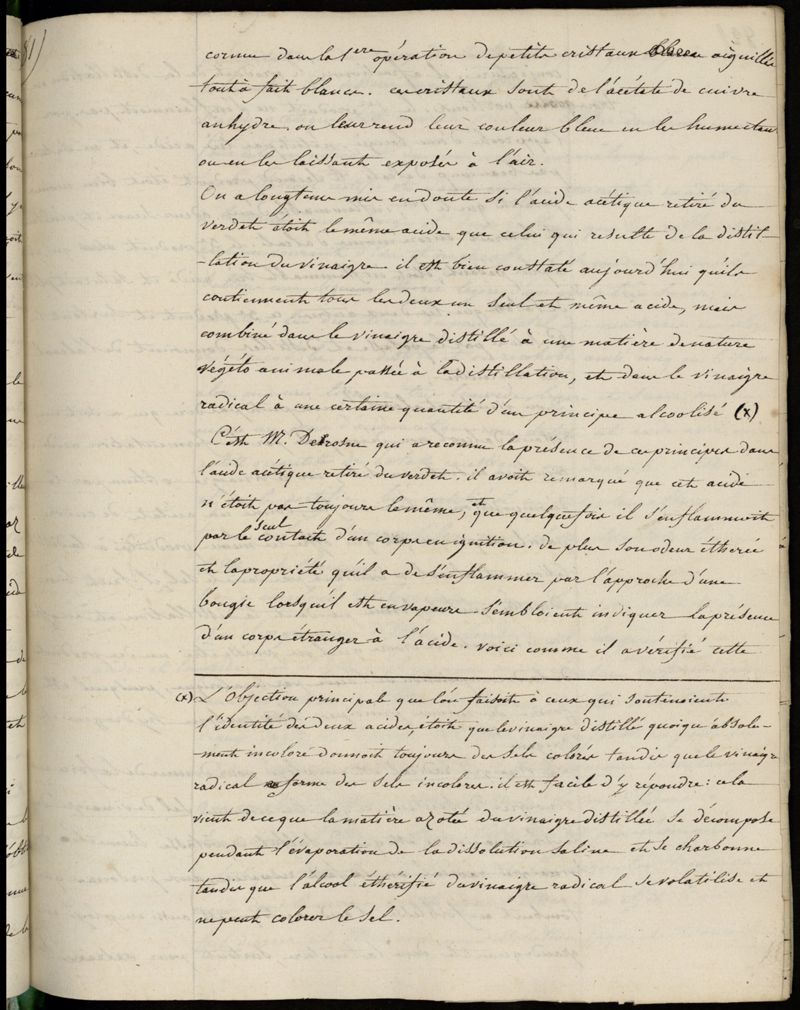 81)
cornue dans la 1ere opération de petits cristaux aiguillés
tout à fait blancs. ces cristaux sont de l'acétate de cuivre
anhydre. on leur rend leur couleur bleue en les humectant
ou en les laissant exposés à l'air.
On a longtems mis en doute si l'acide acétique retiré du
verdet étoit le même acide que celui qui resulte de la distil-
-lation du vinaigre il est bien constaté aujourd'hui qu'ils
contiennent tous les deux un seul et même acide, mais
combiné dans le vinaigre distillé à une matière de nature
végéto animale passée à la distillation, et dans le vinaigre
radical à une certaine quantité d'un principe alcoolisé (x)
C'est M. Derosne qui a reconnu la présence de ces principes dans
l'acide acétique retiré du verdet. il avoit remarqué que cet acide
n'étoit pas toujours le même, et que quelquefois il s'enflammoit
par le seul contact d'un corps en ignition. de plus son odeur éthérée
et la propriété qu'il a de s'enflammer par l'approche d'une
bougie lorsqu'il est en vapeurs sembloient indiquer la présence
d'un corps étranger à l'acide. voici comme il a vérifié cette
(x) L'Objection principale que l'on faisoit à ceux qui soutenoient
l'identité des deux acides, étoit que le vinaigre distillé quoique absolu-
-ment incolore donnoit toujours des sels colorés tandis que le vinaigre
radical forme des sels incolores. il est facile d'y répondre: cela
vient de ce que la matière azotée du vinaigre distillée se décompose
pendant l'évaporation de la dissolution saline et se charbonne
tandis que l'alcool éthérifié du vinaigre radical se volatilise et
ne peut colorer le sel.